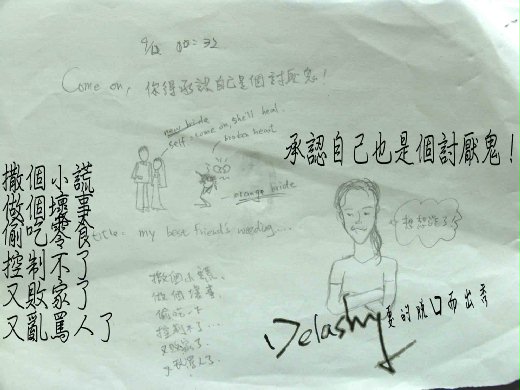 Come on, 你得承認自己是個討厭鬼!
new bride
self: come on, she'll heal.
broken heart
承認自己也是個討厭鬼!
orange bride
撒個小謊
做個壞事
偷吃零食
控制不了
又敗家了
又亂罵人了
title: my best friend's weeding....
想想罷了!
撒個小謊、
做個壞事
偷吃一下
控制不了...
又敗家了
又亂罵人了
Delashy
真的脫口而出委